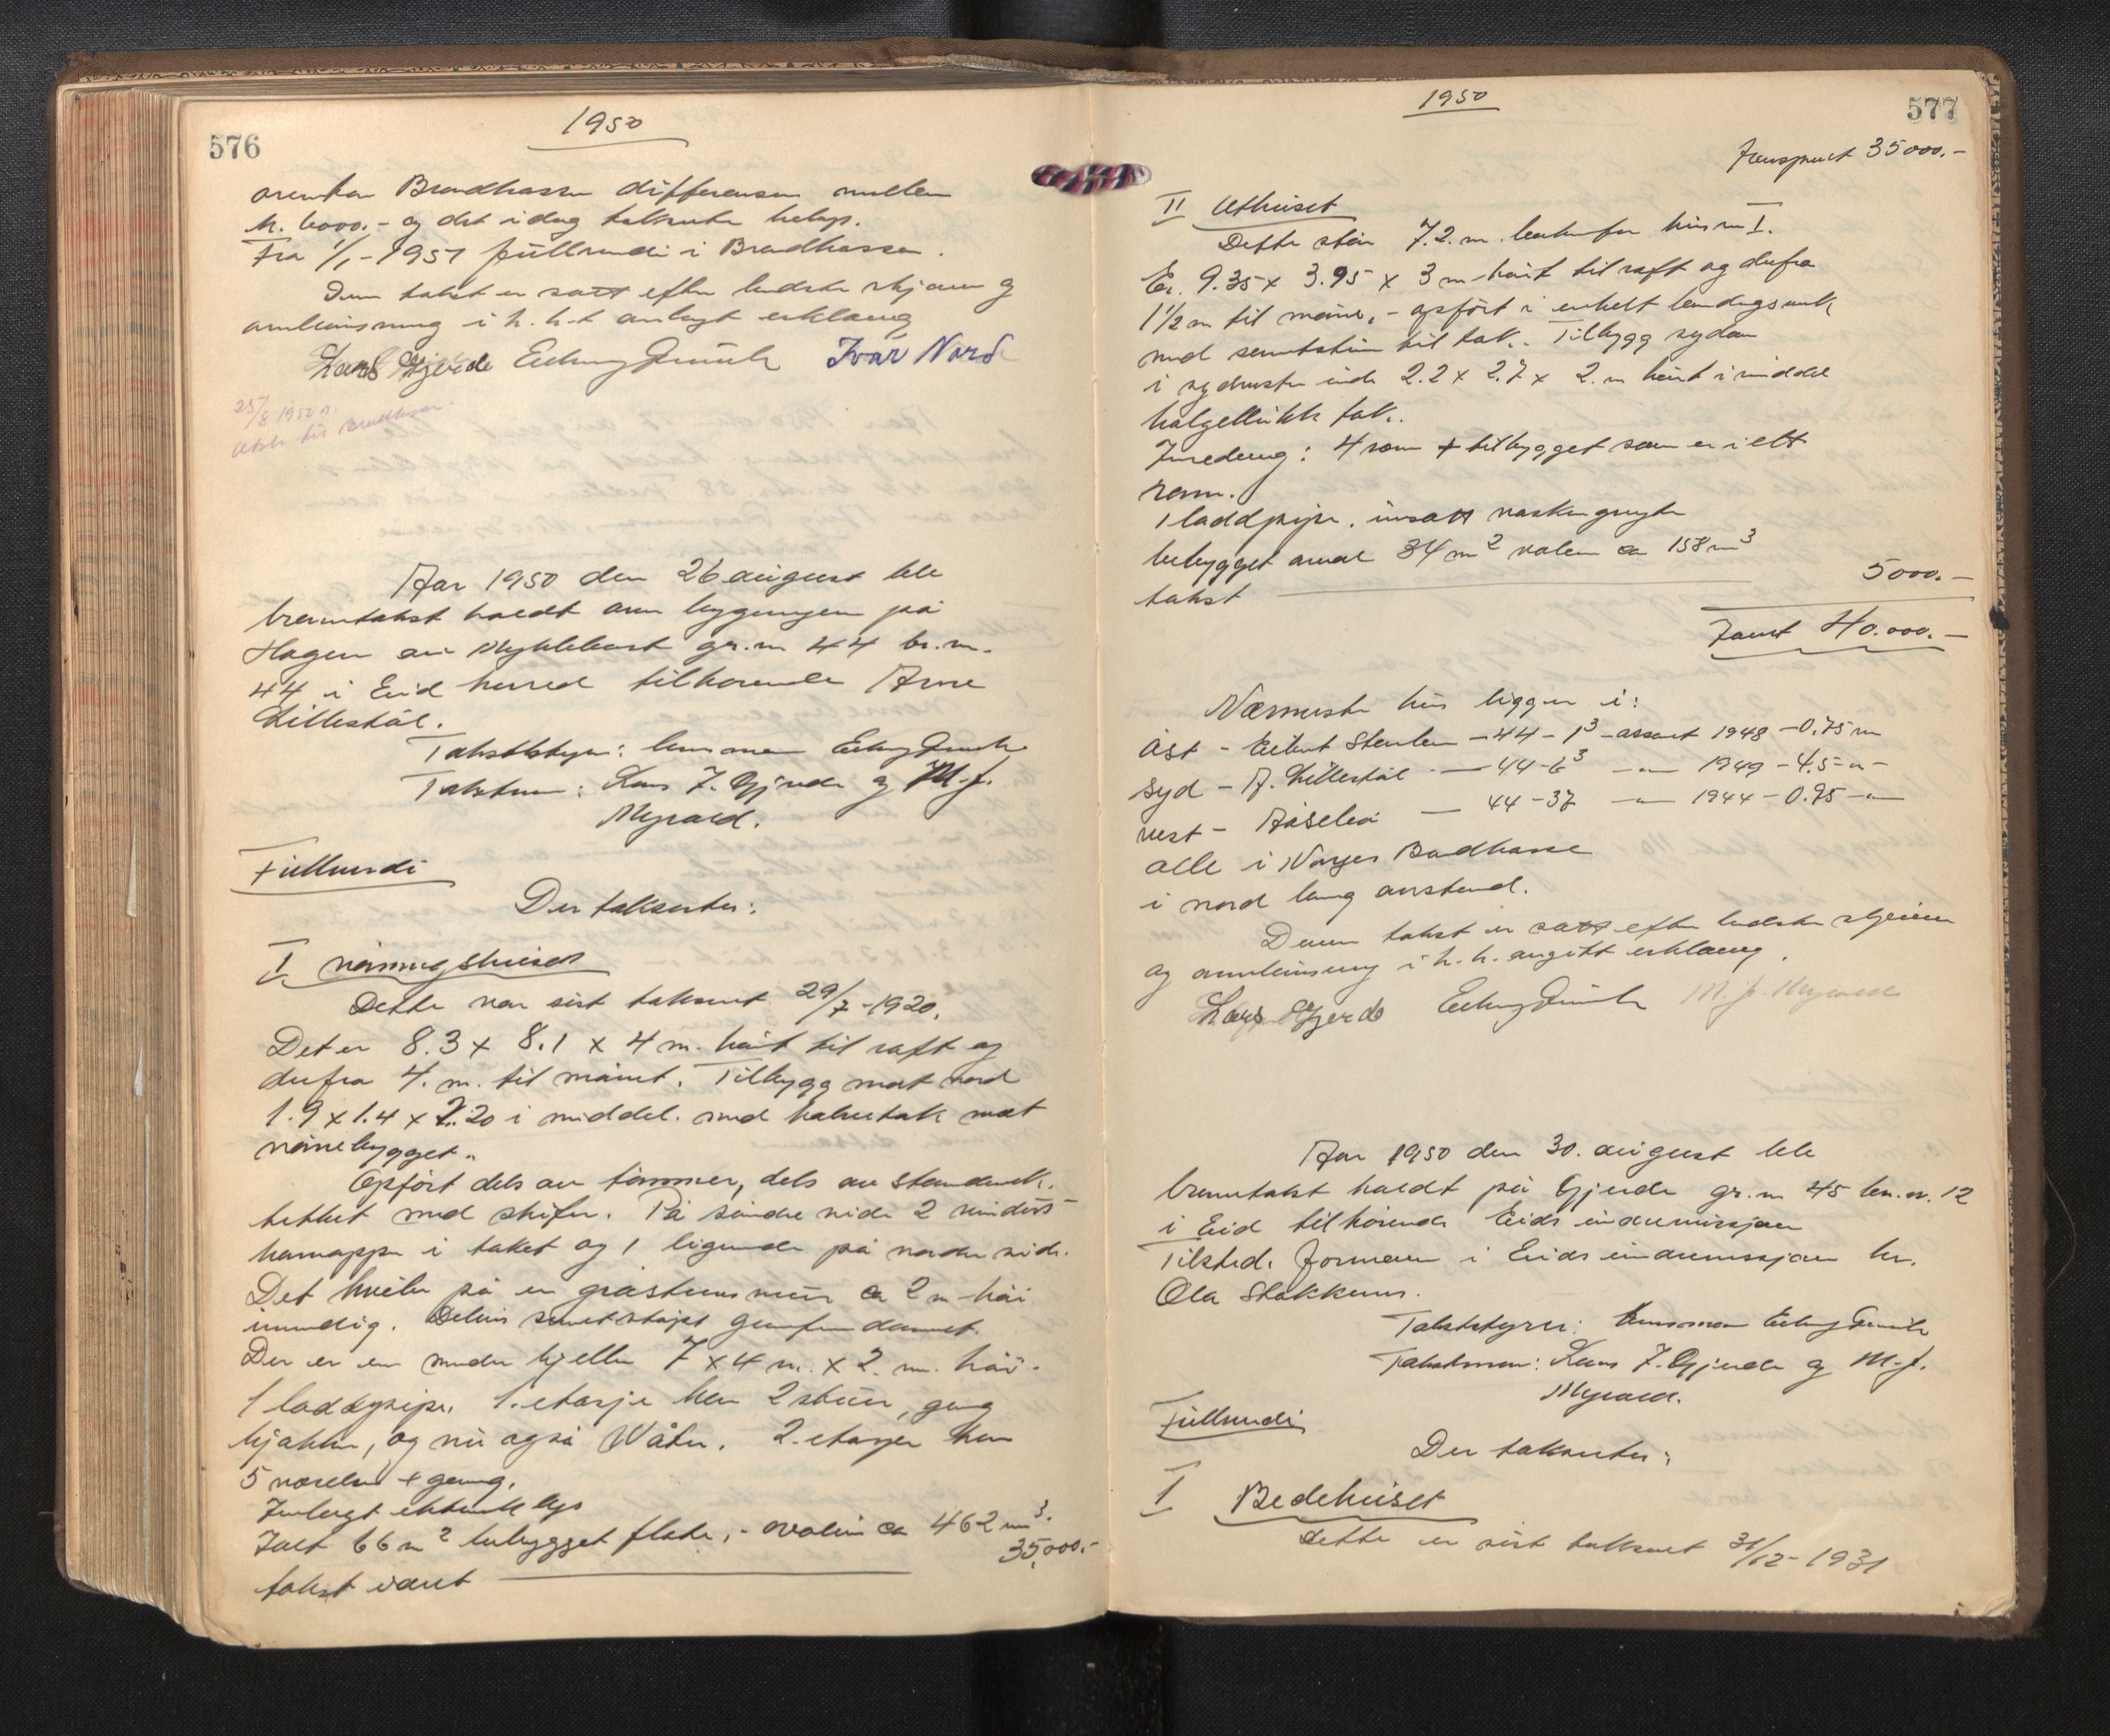 576
1950
Brandkassen differensen mellem
kr. 6000.- og det idag takserte beløp.
Fra 1/1-1951 fullverdi i Brandkassen.
Denne takst er satt efter bedste skjønn og
anvisning i h.h.t. avlagt erklæring
Lars Gjerde Erling Ivar Nord
25/8 1950
Utsk. til Brandkassen
Aar 1950 den 26 august ble
branntakst holdt over bygningen på
Hagen av Myklebust gr.nr. 44 br.nr.
44 i Eid herred tilhørende Arne
Lillestøl.
Takstbestyrer: lensmann Erling
Takstmenn: Lars J. Gjerde og M. J.
Myrvold.
Fullverdi
Der takseres:
I våningshuset
Dette var sist taksert 29/7-1920.
Det er 8.3 x 8.1 x 4 m. høit til raft og
derfra 4. m. til mønet. Tilbygg mot nord
1.9 x 1.4 x 2.20 i middel. med halvtak mot
vånebygget.
Opført dels av tømmer, dels av stenderverk.
tekket med skifer. På søndre side 2 vindus
kanapper i taket og 1 lignende på nordre side.
Det hviler på en gråstensmur ca 2 m høi
innvendig. Delvis sementstøpt grunfundament.
Der er en kjeller 7 x 4 m. x 2. m. høi.
1 laddpipe. 1. etasje har 2 stuer, gang
kjøkken, og nu også 2. etasje har
5 værelser + gang.
Innlagt elektrisk lys
Ialt 66 m2 bebygget flate, - volum ca 462 m3.
takst 35,000.-
577
1950
Transport 35000.-
II Uthuset
Dette står 7.2. m. hus nr I.
Er. 9.35 x 3.95 x 3 m høit til raft og derfra
1 1/2 m til møne, - opført i enkelt bindingsverk
med sementstein til tak. Tilbygg
i ende 2.2 x 2.7 x 2. m høit i middel
bølgeblikk tak.
Innredning: 4 rom + tilbygget som er i ett
rom.
1 laddpipe. innsatt vaskegryte
bebygget areal 34 m2 volum ca 158 m3
takst 5000.-
Samt 40.000.-
Nærmeste hus ligger i:
Øst - Stenlen - 44 - 1^3 - assurert 1948 - 0.75 m
syd - A. Lillestøl - 44-6^3 - " - 1949 - 4.5 - " -
vest - Åselva - 44 - 37 - " - 1944 - 0.95 - " -
alle i Norges Brandkasse
i nord lang avstand.
Denne takst er satt efter bedste skjønn
og anvisning i h.h. avgitt erklæring.
Lars Gjerde Erling M. J. Myrvold
Aar 1950 den 30. august ble
branntakst holdt på Gjerde gr.nr. 45 br.nr. 12
i Eid tilhørende Eids indremisjon
Tilstede formann i Eids indremisjon hr.
Ola Stokkenes.
Takstbestyrer: lensmann Erling
Takstmenn: Lars J. Gjerde og M. J.
Myrvold.
Fullverdi
Der takseres:
I Bedehuset
Dette er sist taksert 31/12-1931